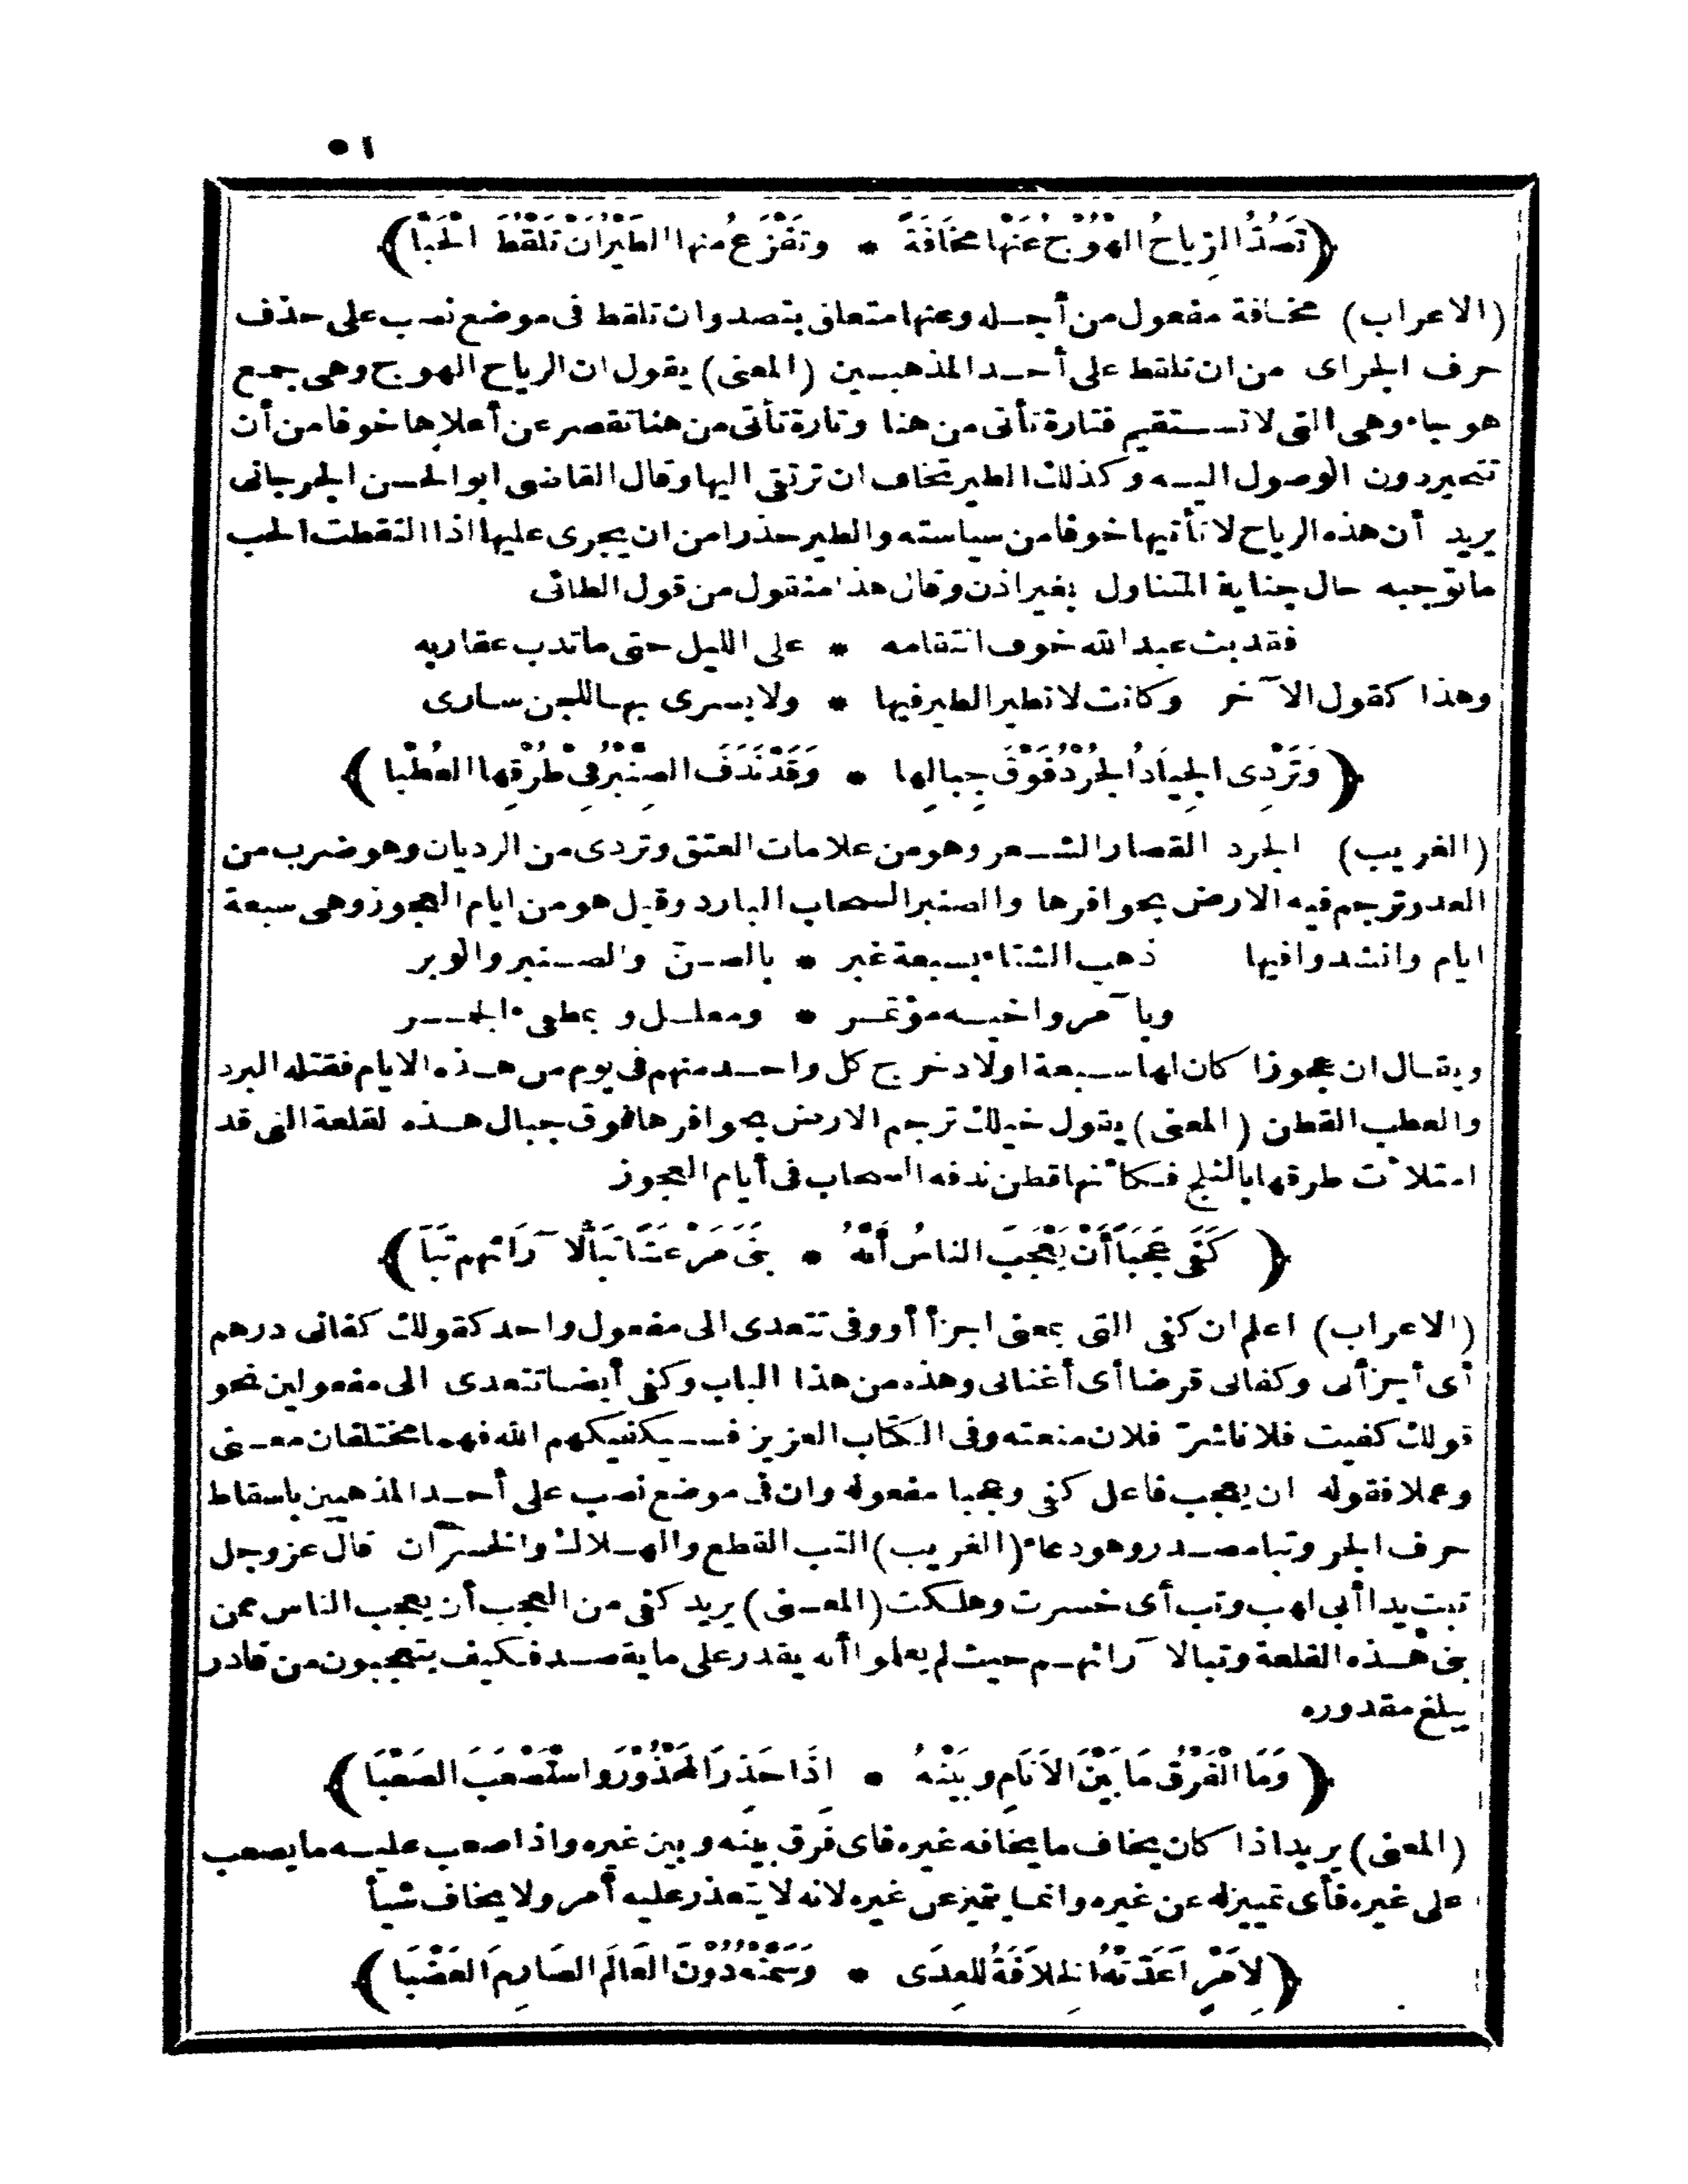 ٥١
﴿تَصُدُّ الرِّياحُ الهُوْجُ عَنْها مَخَافَةً * وتَفْزَعُ منها الطَيْرُ ان تَلْقُطَ الحَبَّا﴾
(الاعراب) مخافة مفعول من أجله وعنها متعلق بتصد وان تلقط فى موضع نصب على حذف
حرف الجر اى من ان تلقط على أحد المذهبين (المعنى) يقول ان الرياح الهوج وهى جمع
هوجاء وهى التى لا تستقيم فتارة تأتى من هنا وتارة تأتى من هنا تقصر عن أعلاها خوفا من أن
تتحير دون الوصول اليه وكذلك الطير تخاف ان ترتقى اليها وقال القاضى ابو الحسن الجرجانى
يريد أن هذه الرياح لا تأتيها خوفا من سياسته والطير حذرا من ان يجرى عليها اذا التقطت الحب
ما توجبه حال جناية المتناول بغير اذن وقال هذا منقول من قول الطائى
فقد بث عبد الله خوف انتقامه * على الليل حتى ما تدب عقاربه
وهذا كقول الآخر وكانت لا تطير الطير فيها * ولا يسرى بها للجن سارى
﴿وَتَرْدِى الجِيَادُ الجُرْدُ فَوْقَ جِبالِها * وَقَدْ نَدَفَ الصِنَّبْرُ فى طُرْقِها العُطْبا﴾
(الغريب) الجرد القصار الشعر وهو من علامات العتق وتردى من الرديان وهو ضرب من
العدو ترجم فيه الارض بحوافرها والصنبر السحاب البارد وقيل هو من ايام العجوز وهى سبعة
ايام وانشدوا فيها ذهب الشتاء بسبعة غبر * بالصن والصنبر والوبر
وبآمر واخيه مؤتمر * ومعلل وبمطفئ الجمر
ويقال ان عجوزا كان لها سبعة اولاد خرج كل واحد منهم فى يوم من هذه الايام فقتله البرد
والعطب القطن (المعنى) يقول خيلك ترجم الارض بحوافرها فوق جبال هذه لقلعة التى قد
امتلأت طرقها بالثلج فكأنها قطن ندفه السحاب فى أيام العجوز
﴿كَفَى عَجَبًا أَنْ يَعْجَبَ الناسُ أَنَّهُ * بَنَى مَرْعَشًا تَبًّا لآرَائهم تَبَّا﴾
(الاعراب) اعلم ان كفى التى بمعنى اجزأ أو وفى تتعدى الى مفعول واحد كقولك كفانى درهم
أى أجزأنى وكفانى قرضا أى أغنانى وهذه من هذا الباب وكفى أيضا تتعدى الى مفعولين نحو
قولك كفيت فلانا شرّ فلان منعته وفى الكتاب العزيز فسيكفيكهم الله فهما مختلفان معنى
وعملا فقوله ان يعجب فاعل كفى وعجبا مفعوله وان فى موضع نصب على أحد المذهبين باسقاط
حرف الجر وتبا مصدر وهو دعاء (الغريب) التب القطع والهلاك والخسران قال عز وجل
تبت يدا أبى لهب وتب أى خسرت وهلكت (المعنى) يريد كفى من العجب أن يعجب الناس ممن
بنى هذه القلعة وتبا لآرائهم حيث لم يعلموا أنه يقدر على ما يقصد فكيف يتعجبون من قادر
يبلغ مقدوره
﴿وَمَا الْفَرْقُ مَا بَيْنَ الاَنَامِ وبَيْنَهُ * اِذَا حَذِرَ المَحْذُوْرَ واسْتَصْعَبَ الصَعْبَا﴾
(المعنى) يريد اذا كان يخاف ما يخافه غيره فاى فرق بينه وبين غيره واذا صعب عليه ما يصعب
على غيره فأى تمييز له عن غيره وانما يتميز عن غيره لانه لا يتعذر عليه أمر ولا يخاف شيأ
﴿لِاَمْرٍ اَعَدَّتْهُ الخِلاَفَةُ لِلعِدَى * وَسَمَّتْهُ دُوْنَ العَالَمِ الصَارِمَ العَضْبَا﴾